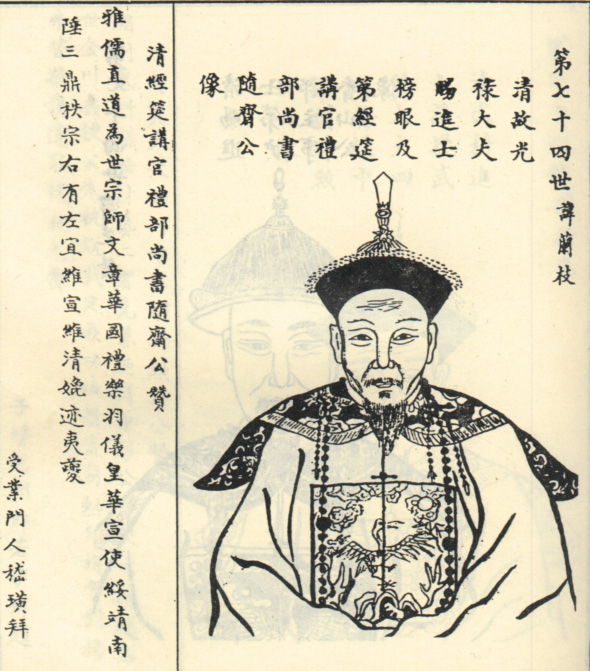 第七十四世諱蘭枝
清故光
祿大夫
賜進士
榜眼及
第經筵
講官禮
部尚書
隨齋公
像
清經筵講官禮部尚書隨齋公贊
雅儒直道為世宗師文章華國禮樂羽儀皇華宣使綏靖南
陲三鼎秩宗右有左宜維宣維清媲迹夷夔
受業門人嵇璜拜